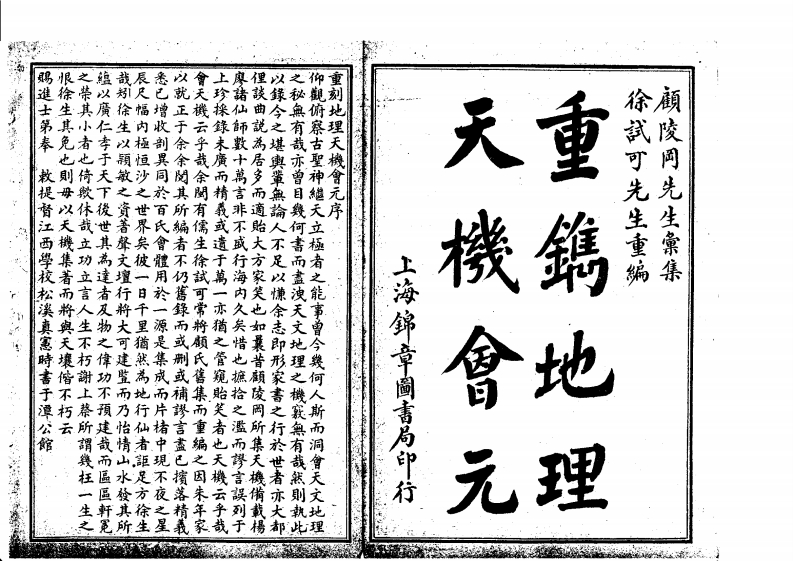 顧陵岡先生彙集
徐試可先生重編
重鐫地理
天機會元
上海錦章圖書局印行
重刻地理天機會元序
仰觀俯察古聖神繼天立極者之能事曾今幾何人斯而洞會天文地理
之秘無有哉亦曾目幾何書而盡洩天文地理之機竅無有哉然則執此
以錄今之堪輿輩無論人不足以慊余志即形家書之行於世者亦大都
俚談曲說為居多而適貽大方家笑也如曩昔顧陵岡所集天機備載楊
廖諸仙師數十萬言非不盛行海內久矣惜也摭拾之濫而謬言誤列于
上珍採錄未廣而精義或遺于萬一亦猶之管窺貽笑者也天機云乎哉
會天機云乎哉余閱有儒生徐試可常將顧氏舊集而重編之因朱年家
以就正于余余閱其所編者不仍舊錄而或刪或補謬言盡已擯落精義
悉已增收剖異同於百氏會體用於一源是集成而片楮中現不夜之星
辰尺幅內極恒沙之世界矣彼一日千里猶然為地行仙者詎足方徐生
哉矧徐生以穎敏之資蓍聲文壇行將大可建豎而乃怡情山水發其所
蘊以廣仁孝于天下後世其為達者及物之偉功不預建哉而區區軒冕
之榮其小者也倚歟休哉立功立言人生不朽謝上蔡所謂幾枉一生之
恨徐生其免也則毋以天機集著而將與天壤偕不朽云
賜進士第奉 敕提督江西學校松溪真憲時書于潭公館